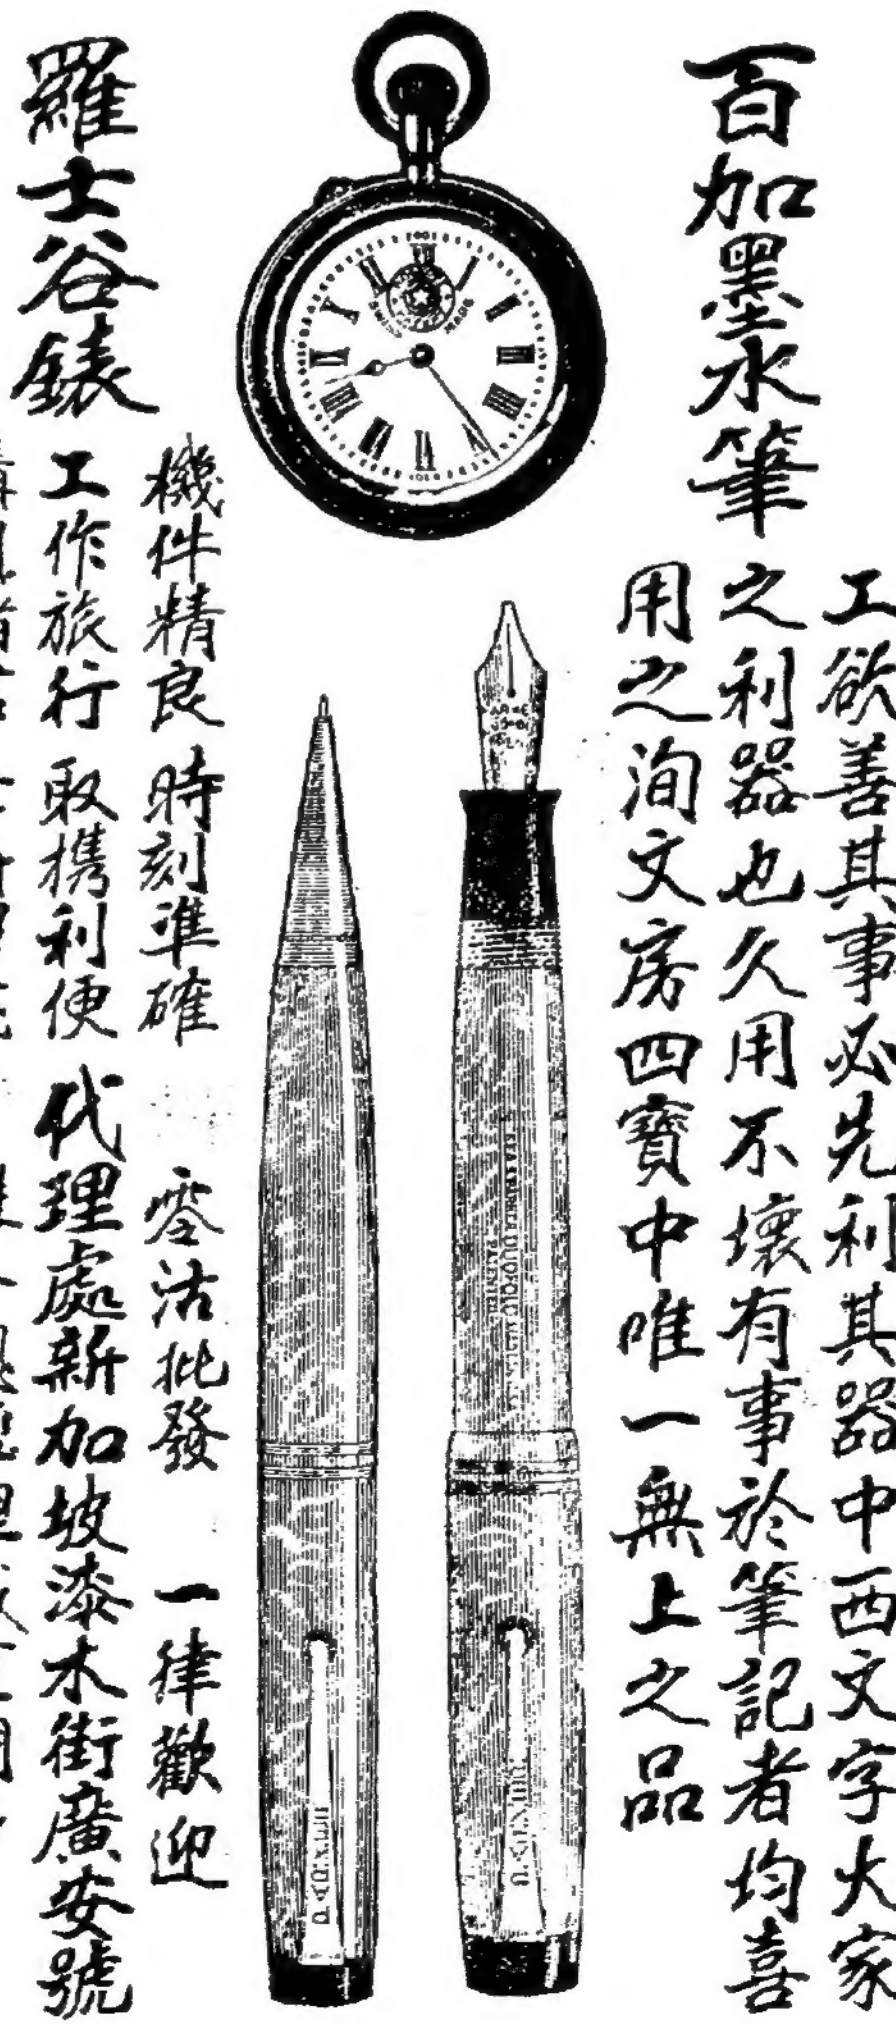 百加墨水筆
工欲善其事必先利其器中西文字大家
之利器也久用不壞有事於筆記者均喜
用之洵文房四寶中唯一無上之品
羅士谷錶
機件精良 時刻準確 零沽批發 一律歡迎
工作旅行 取携利便 代理處新加坡漆木街廣安號
SWISS MADE
PARKER
PARKER